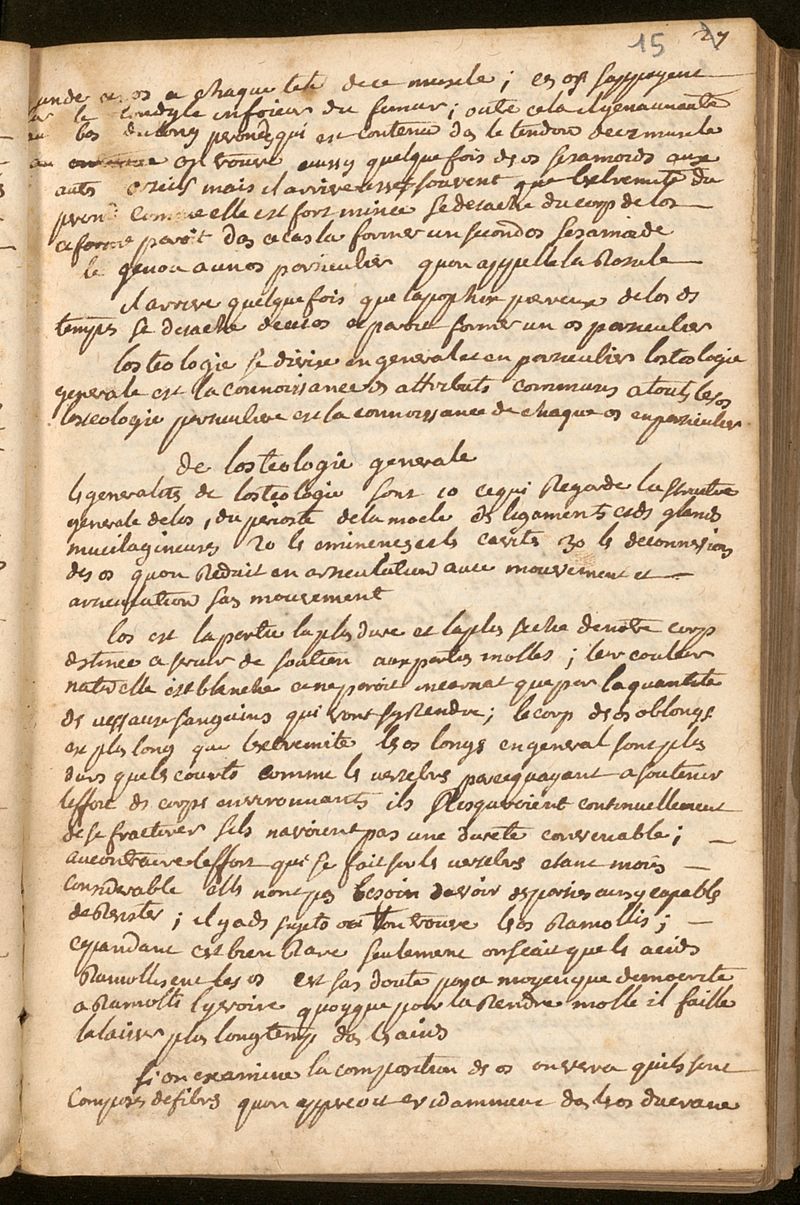 15 27
un de ces os a chaque tete de ce muscle; ces os sappuyent
le condyle inferieur du femur; oute cela il y en a un autre
au bas du long peronée qui est contenu das le tendon de ce muscle
on trouve aussy quelque fois des os sesamoids aux
auts orteils mais il arrive assez souvent que lextremité du
comme elle est fort mince se detache du corp de los
paroit das ce cas la former un second os sesamoide
le genou a un os particulier quon appelle la Rotule
il arrive quelque fois que lapophise pierreuse de los ds
temps se detache de cet os et paroit former un os particulier
losteologie se divise en generale et en particulier losteologie
generale est la connoissance ds attributs communs a touts les os
losteologie particuliere est la connoissance de chaque os en particulier
de losteologie generale
ls generalités de losteologie sont 1o ce qui Regarde la structure
generale de los, du perioste de la moele ds ligaments et ds glands
mucilagineuses 2o ls eminences et ls cavités 3o ls deconnexions
des os quon Reduit en articulation avec mouvement et
articulation sas mouvement
los est la partie la plus dure et la plus seche de notre corp
destinee a servir de soutien aux parties molles; leur couleur
naturelle est blanche et ne paroit incarnat que par la quantité
ds vesseaux sanguins qui vont sy Rendre; le corp des os oblongs
est plus long que lextremité ls os longs en general sont plus
durs que ls courts comme ls vertebres parcequayant a soutenir
leffort ds corps environnants ils Risqueroient continuellement
de se fracturer sils navoient pas une dureté convenable;
au contraire leffort qui se fait sur ls vertebres etant moins
considerable ells nont pas besoin davoir des parties aussy capables
de Resister; il y a ds sujets ou lon trouve ls os Ramollis;
cependant cest bien Rare seulement on scait que ls acids
Ramollissent les os cest sas doute par ce moyen que democrite
a Ramolli lyvoire quoyque pour la Rendre molle il faille
la laisser plus longtemp das ls acids
si on examine la composition ds os on verra quils sont
composés de fibrs quon appercoit evidamment das ls os du crane